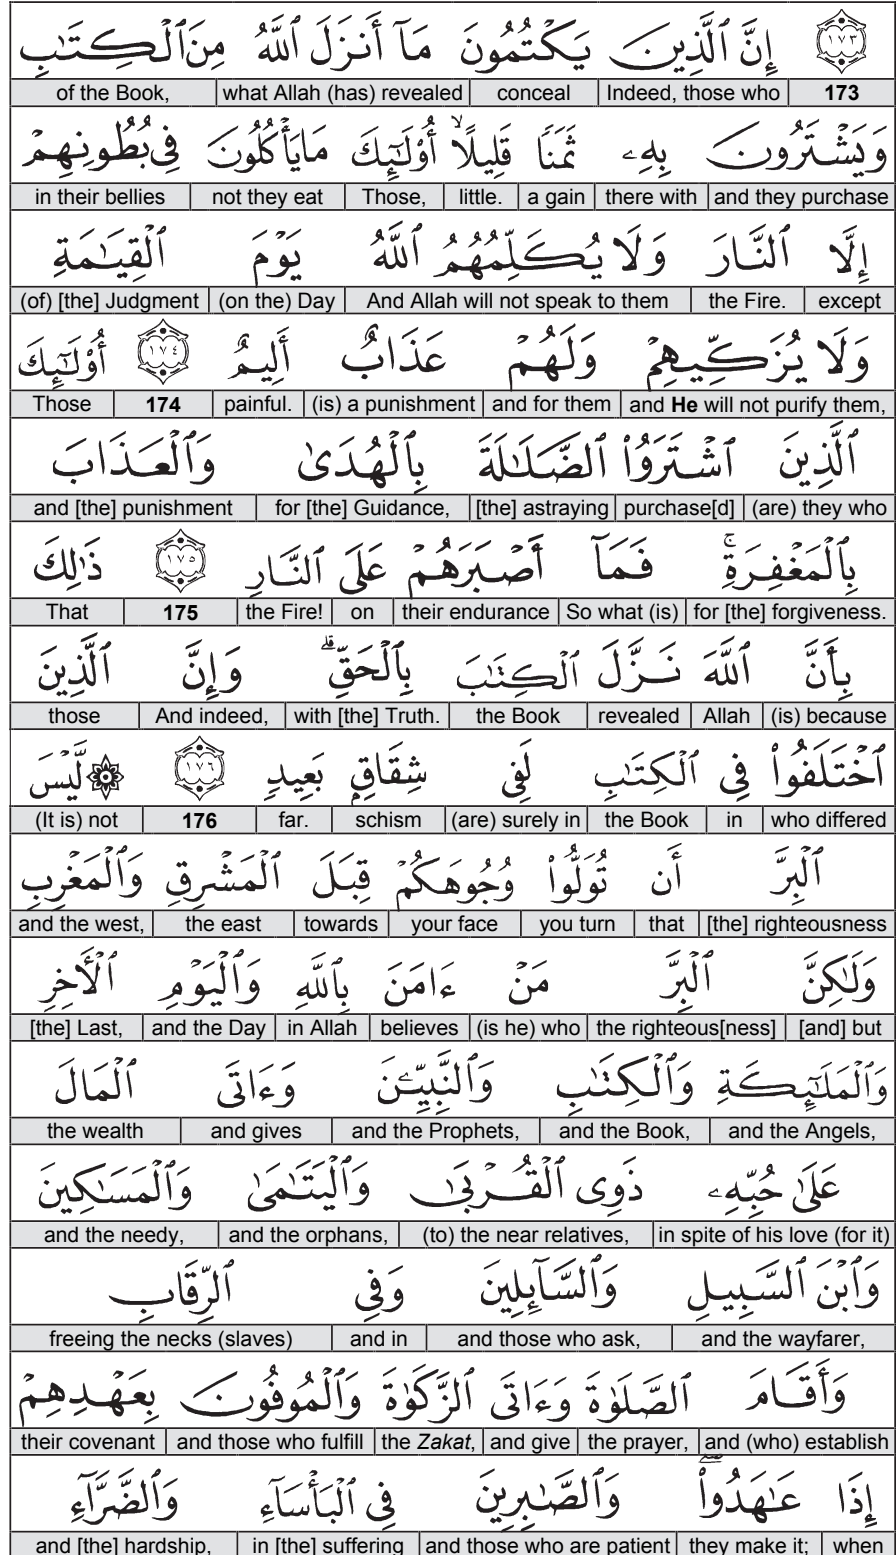 ﴿١٧٣﴾ إِنَّ ٱلَّذِينَ يَكْتُمُونَ مَآ أَنزَلَ ٱللَّهُ مِنَ ٱلْكِتَٰبِ
173 Indeed, those who conceal what Allah (has) revealed of the Book,
وَيَشْتَرُونَ بِهِۦ ثَمَنًا قَلِيلًا ۙ أُو۟لَٰٓئِكَ مَا يَأْكُلُونَ فِى بُطُونِهِمْ
and they purchase there with a gain little. Those, not they eat in their bellies
إِلَّا ٱلنَّارَ وَلَا يُكَلِّمُهُمُ ٱللَّهُ يَوْمَ ٱلْقِيَٰمَةِ
except the Fire. And Allah will not speak to them (on the) Day (of) [the] Judgment
وَلَا يُزَكِّيهِمْ وَلَهُمْ عَذَابٌ أَلِيمٌ ﴿١٧٤﴾ أُو۟لَٰٓئِكَ
and He will not purify them, and for them (is) a punishment painful. 174 Those
ٱلَّذِينَ ٱشْتَرَوُا۟ ٱلضَّلَٰلَةَ بِٱلْهُدَىٰ وَٱلْعَذَابَ
(are) they who purchase[d] [the] astraying for [the] Guidance, and [the] punishment
بِٱلْمَغْفِرَةِ ۚ فَمَآ أَصْبَرَهُمْ عَلَى ٱلنَّارِ ﴿١٧٥﴾ ذَٰلِكَ
for [the] forgiveness. So what (is) their endurance on the Fire! 175 That
بِأَنَّ ٱللَّهَ نَزَّلَ ٱلْكِتَٰبَ بِٱلْحَقِّ ۗ وَإِنَّ ٱلَّذِينَ
(is) because Allah revealed the Book with [the] Truth. And indeed, those
ٱخْتَلَفُوا۟ فِى ٱلْكِتَٰبِ لَفِى شِقَاقٍۭ بَعِيدٍ ﴿١٧٦﴾ ۞ لَّيْسَ
who differed in the Book (are) surely in schism far. 176 (It is) not
ٱلْبِرَّ أَن تُوَلُّوا۟ وُجُوهَكُمْ قِبَلَ ٱلْمَشْرِقِ وَٱلْمَغْرِبِ
[the] righteousness that you turn your face towards the east and the west,
وَلَٰكِنَّ ٱلْبِرَّ مَنْ ءَامَنَ بِٱللَّهِ وَٱلْيَوْمِ ٱلْـَٔاخِرِ
[and] but the righteous[ness] (is he) who believes in Allah and the Day [the] Last,
وَٱلْمَلَٰٓئِكَةِ وَٱلْكِتَٰبِ وَٱلنَّبِيِّـۧنَ وَءَاتَى ٱلْمَالَ
and the Angels, and the Book, and the Prophets, and gives the wealth
عَلَىٰ حُبِّهِۦ ذَوِى ٱلْقُرْبَىٰ وَٱلْيَتَٰمَىٰ وَٱلْمَسَٰكِينَ
in spite of his love (for it) (to) the near relatives, and the orphans, and the needy,
وَٱبْنَ ٱلسَّبِيلِ وَٱلسَّآئِلِينَ وَفِى ٱلرِّقَابِ
and the wayfarer, and those who ask, and in freeing the necks (slaves)
وَأَقَامَ ٱلصَّلَوٰةَ وَءَاتَى ٱلزَّكَوٰةَ وَٱلْمُوفُونَ بِعَهْدِهِمْ
and (who) establish the prayer, and give the Zakat, and those who fulfill their covenant
إِذَا عَٰهَدُوا۟ ۖ وَٱلصَّٰبِرِينَ فِى ٱلْبَأْسَآءِ وَٱلضَّرَّآءِ
when they make it; and those who are patient in [the] suffering and [the] hardship,